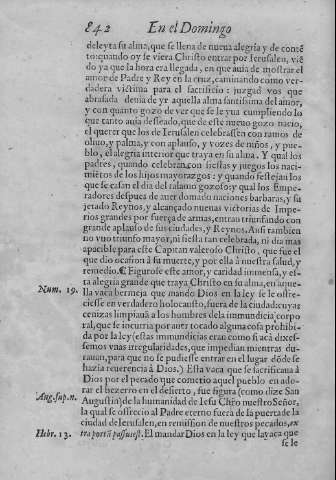 842 En el Domingo
deleyta su alma, que se llena de nueua alegria y de contẽ
to: quando oy se viera Christo entrar por Ierusalen, viẽ
do ya que la hora era llegada, en que auia de mostrar el
amor de Padre y Rey en la cruz, caminando como ver-
dadera victima para el sacrificio: juzgad vos que
abrasada deuia de yr aquella alma santissima del amor,
y con quanto gozo de ver que se le yua cumpliendo lo
que tanto auia desseado, que de este nueuo gozo nacio,
el querer que los de Ierusalen celebrassen con ramos de
oliuo, y palma, y con aplauso, y vozes de niños, y pue-
blo, el alegria interior que traya en su alma. Y qual los
padres, quando celebran, con fiestas y juegos los naci-
mientos de los hijos mayorazgos: y quando festejan los
que se casan el dia del talamo gozoso: y qual los Empe-
radores despues de auer domado naciones barbaras, y su
jetado Reynos, y alcançado nueuas victorias de Impe-
rios grandes por fuerça de armas, entran triunfando con
grande aplauso de sus ciudades, y Reynos. Ansi tambien
no vuo triunfo mayor, ni fiesta tan celebrada, ni dia mas
apacible para este Capitan valeroso Christo, que fue el
que dio ocasion à su muerte, y por ella à nuestra salud, y
remedio. ¶ Figurose este amor, y caridad immensa, y es-
ta alegria grande que traya Christo en su alma, en aque-
Num. 19. lla vaca bermeja que mandò Dios en la ley se le ofre-
ciesse en verdadero holocausto, fuera de la ciudad: cuyas
cenizas limpiauã a los hombres dela immundicia corpo
ral, que se incurria por auer tocado alguna cosa prohibi-
da por la ley (estas immundicias eran como si acà dixes-
semos vnas irregularidades, que impedian mientras du-
rauan, para que no se pudiesse entrar en el lugar dõde se
hazia reuerencia à Dios.) Esta vaca que se sacrificaua à
Dios por el pecado que cometio aquel pueblo en ado-
rar el bezerro en el desierto, fue figura (como dize San
Aug. sup. n. Augustin) de la humanidad de Iesu Chr̃o nuestro Señor,
la qual se offrecio al Padre eterno fuera de la puerta de la
ciudad de Ierusalen, en remission de nuestros pecados, ex
Hebr. 13. tra portã passus est. El mandar Dios en la ley que la vaca que
se le